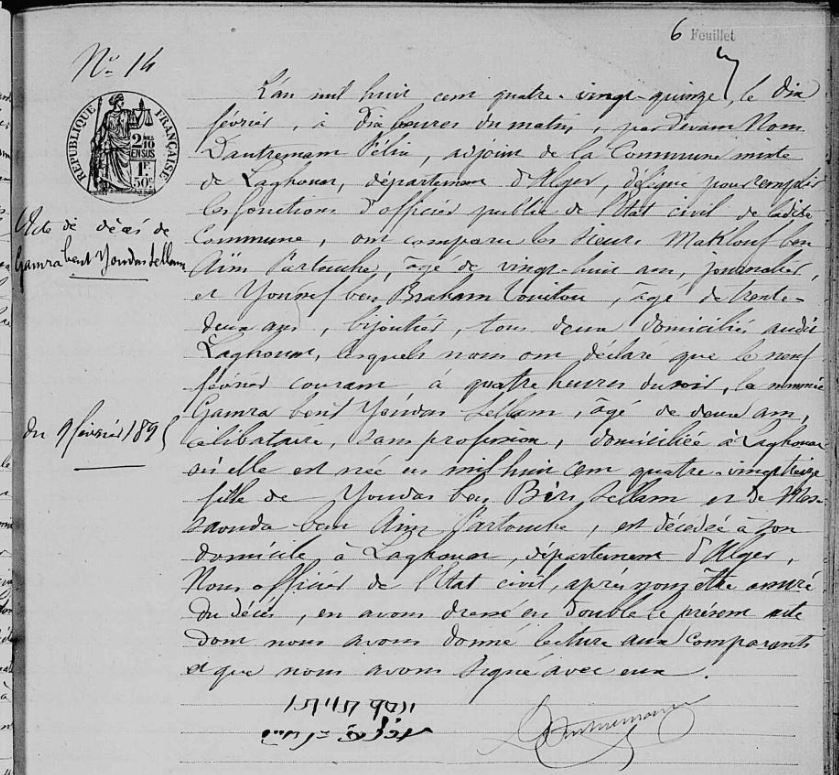 6 Feuillet
N° 14
RÉPUBLIQUE FRANÇAISE
2 10 EN SUS
1F 50c
Acte de décès de
Gamra bent Youdas Sellam
du 9 février 1895
L'an mil huit cent quatre-vingt-quinze, le dix
février, à dix heures du matin, par devant Nous
Dautremant Félix, adjoint de la Commune mixte
de Laghouat, département d'Alger, délégué pour remplir
les fonctions d'officier public de l'Etat civil de ladite
Commune, ont comparu les sieurs Maklouf ben
Aïm Partouche, âgé de vingt-huit ans, journalier,
et Youssef ben Braham Touitou, âgé de trente-
deux ans, bijoutier, tous deux domiciliés audit
Laghouat, lesquels nous ont déclaré que le neuf
février courant à quatre heures du soir, la nommée
Gamra bent Youdas Sellam, âgé de deux ans,
célibataire, sans profession, domiciliée à Laghouat
où elle est née en mil huit cent quatre-vingt treize
fille de Youdas ben Sellam et de Mes-
saouda ben Aïm Partouche, est décédée à son
domicile à Laghouat, département d'Alger.
Nous officier de l'Etat civil, après nous être assuré
du décès, en avons dressé en double le présent acte
dont nous avons donné lecture aux comparants
et que nous avons signé avec eux.
יוסף תויתו
Dautremant